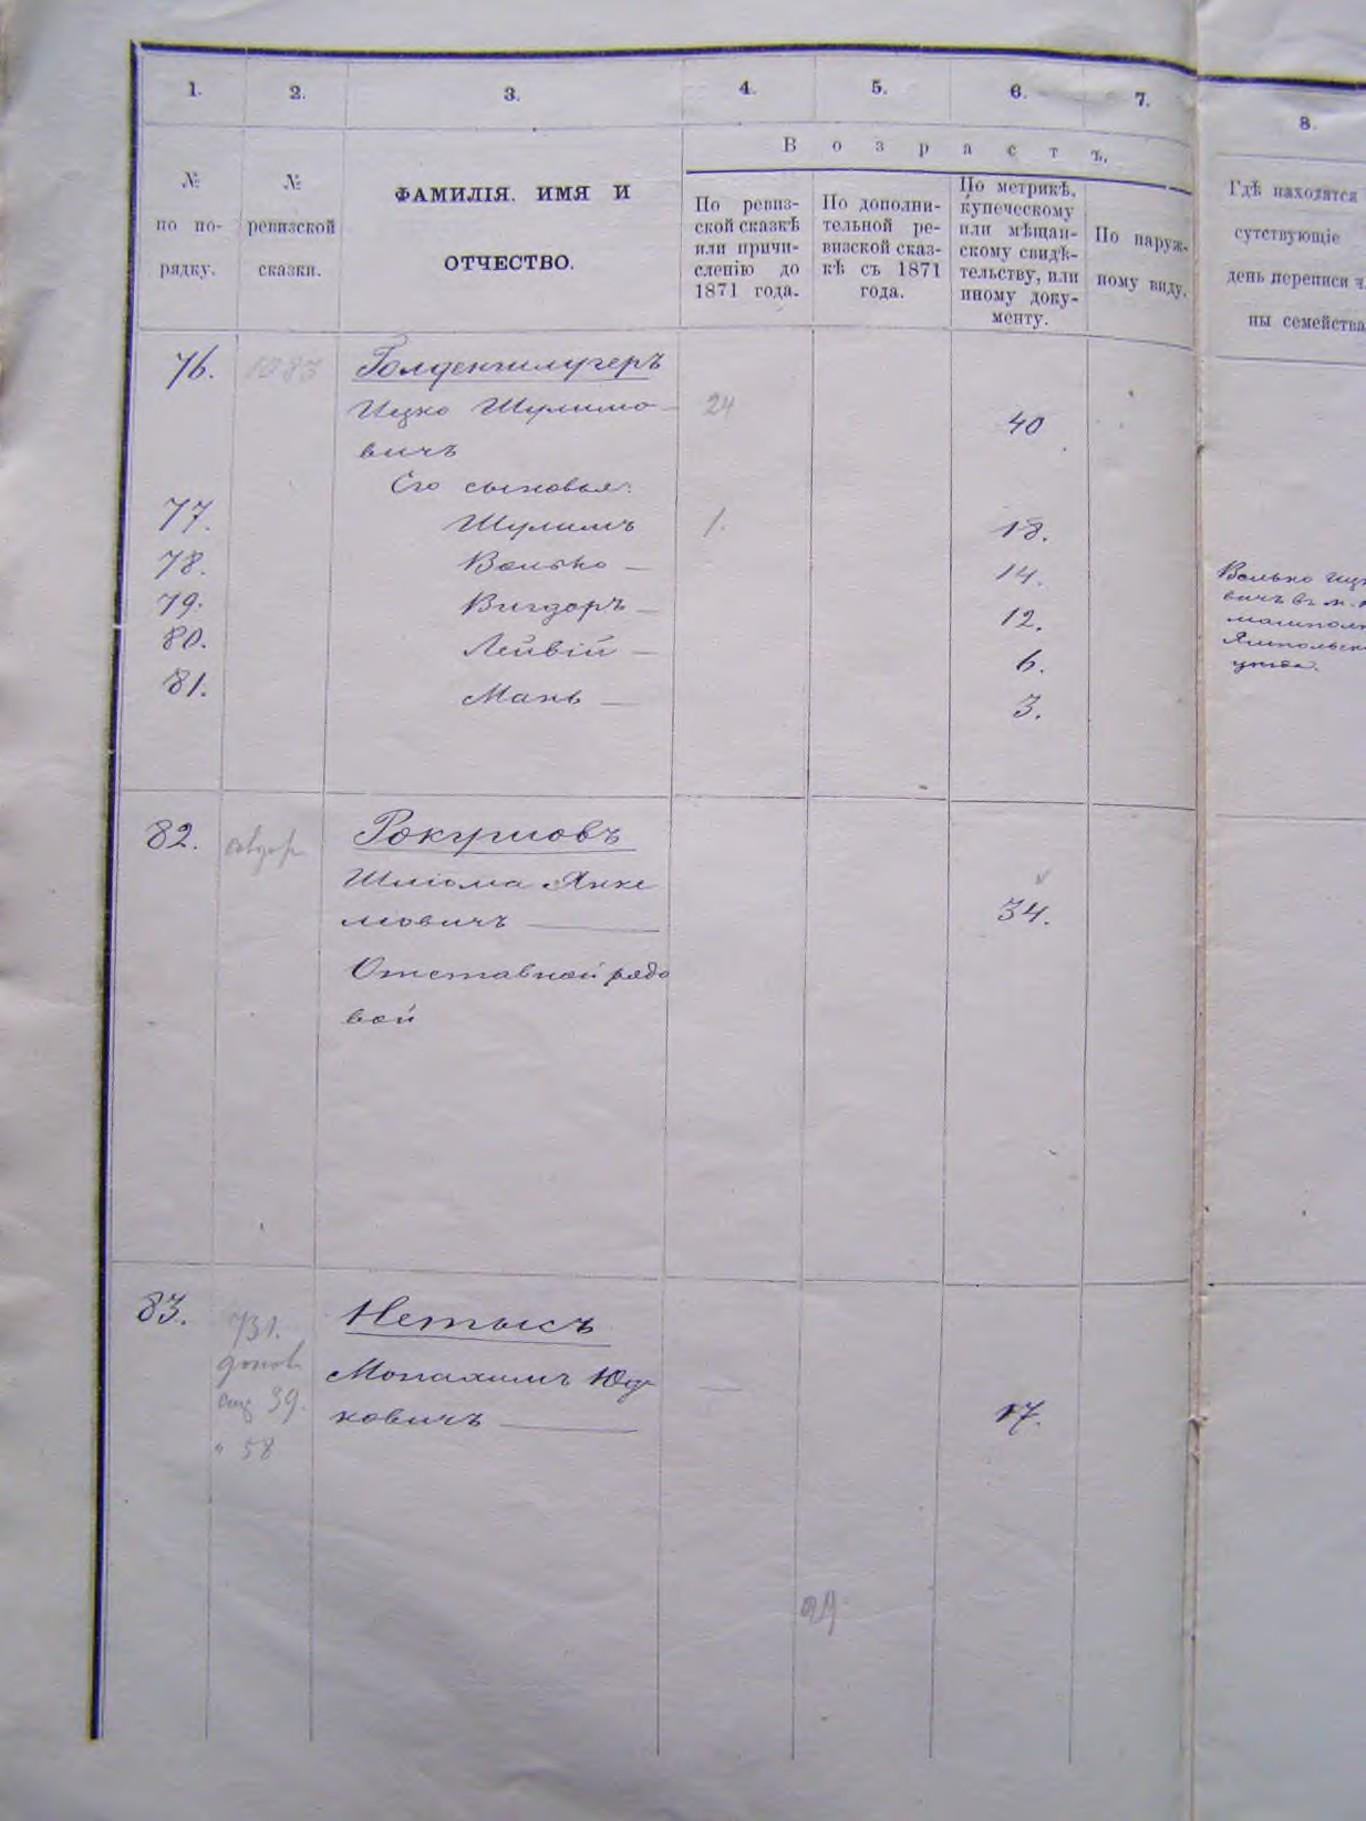 1. 2. 3. 4. 5. 6. 7. 8.
Возрастъ.
№ по по-
рядку.
№ ревизской
сказки.
ФАМИЛІЯ, ИМЯ И
ОТЧЕСТВО.
По ревиз-
ской сказкѣ
или причи-
сленію до
1871 года.
По дополни-
тельной ре-
визской сказ-
кѣ съ 1871
года.
По метрикѣ,
купеческому
или мѣщан-
скому свидѣ-
тельству, или
иному доку-
менту.
По наруж-
ному виду.
Гдѣ находятся
сутствующіе
день переписи
ны семейства
76. 1083 Голденшлугеръ
Ицко Шулимо- 24 40
вичъ
Его сыновья:
77. Шулимъ 1. 18.
78. Волько — 14.
79. Вигдоръ — 12.
80. Лейвій — 6.
81. Мань — 3.
Волько
вичъ въ м.
Ямпольск
уѣзда.
82. Рокурловъ
Шліома Янке
леовичъ 34.
Отставной рядо
вой
83. 731. Нетысъ
допол. Монахимъ Юд- —
39. ковичъ 17.
" 58